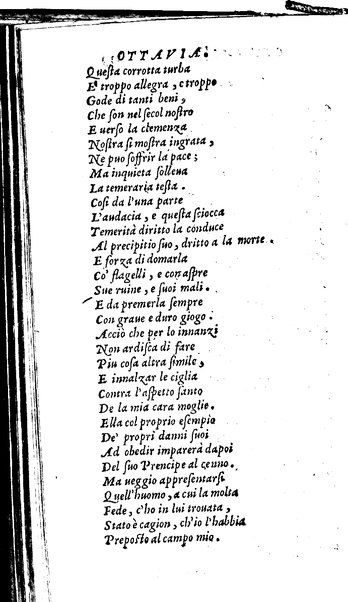 OTTAVIA.
Queſta corrotta turba
E' troppo allegra, e troppo
Gode di tanti beni,
Che ſon nel ſecol noſtro
E uerſo la clemenza
Noſtra ſi moſtra ingrata,
Ne puo ſoffrir la pace;
Ma inquieta ſolleua
La temeraria teſta.
Coſi da l'una parte
L'audacia, e queſta ſciocca
Temerità diritto la conduce
Al precipitio ſuo, dritto a la morte.
E forza di domarla
Co' flagelli, e con aſpre
Sue ruine, e ſuoi mali.
E da premerla ſempre
Con graue e duro giogo.
Acciò che per lo innanzi
Non ardiſca di fare
Piu coſa altra ſimile,
E innalzar le ciglia
Contra l'aſpetto ſanto
De la mia cara moglie.
Ella col proprio eſempio
De' propri danni ſuoi
Ad obedir imparerà dapoi
Del ſuo Prencipe al cenno.
Ma ueggio appreſentarſi
Quell'huomo, a cui la molta
Fede, c'ho in lui trouata,
Stato è cagion, ch'io l'habbia
Prepoſto al campo mio.